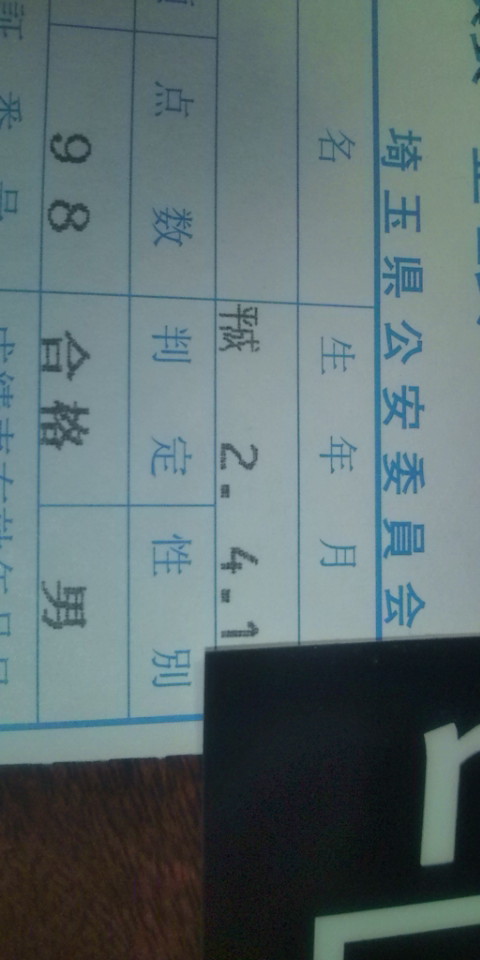 埼玉県公安委員会
名 生年月
平成 2. 4.1
点数 判定 性別
98 合格 男
番号